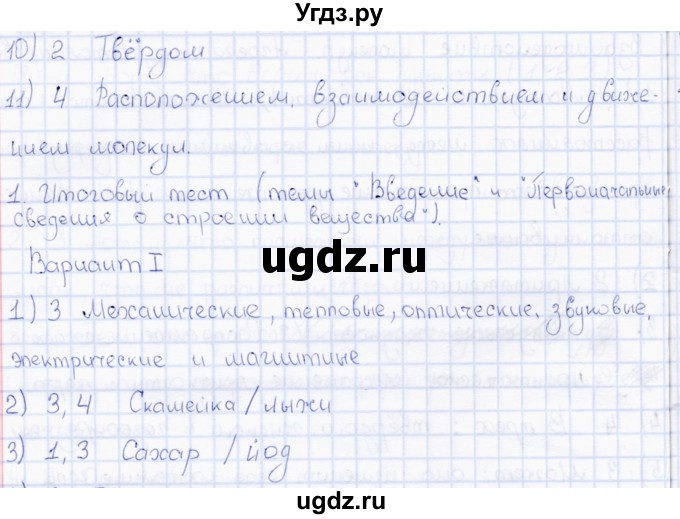 Угдз.ру
10) 2 Твёрдом
11) 4 Расположением, взаимодействием и движе-
нием молекул.
1. Итоговый тест (темы "Введение" и "Первоначальные
сведения о строении вещества").
ugdz.ru
Вариант I
1) 3 Механические, тепловые, оптические, звуковые,
электрические и магнитные
2) 3, 4 Скамейка / лыжи
3) 1, 3 Сахар / йод
ugdz.ru